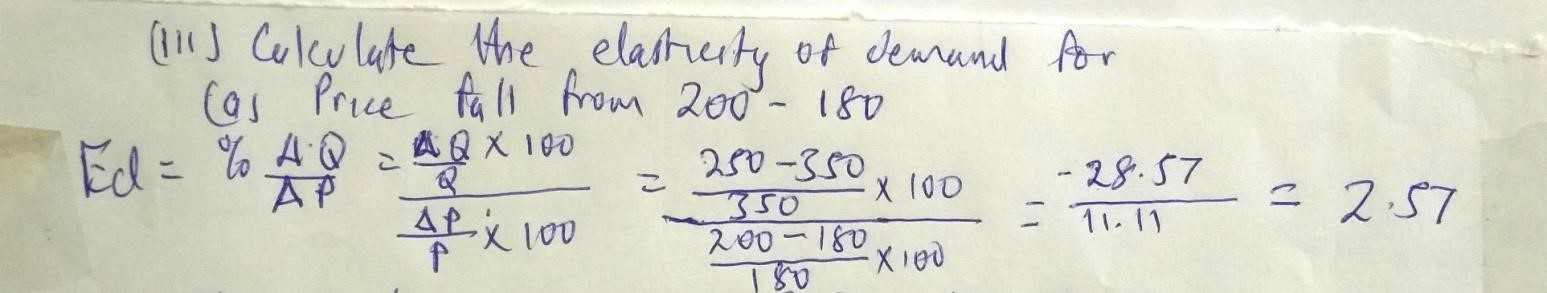 (iii) Calculate the elasticity of demand for
(as Price fall from 200 - 180
Ed = % ΔQ/ΔP = (ΔQ/Q × 100)/(ΔP/P × 100) = ((250-350)/350 × 100)/((200-180)/180 × 100) = -28.57/11.11 = 2.57